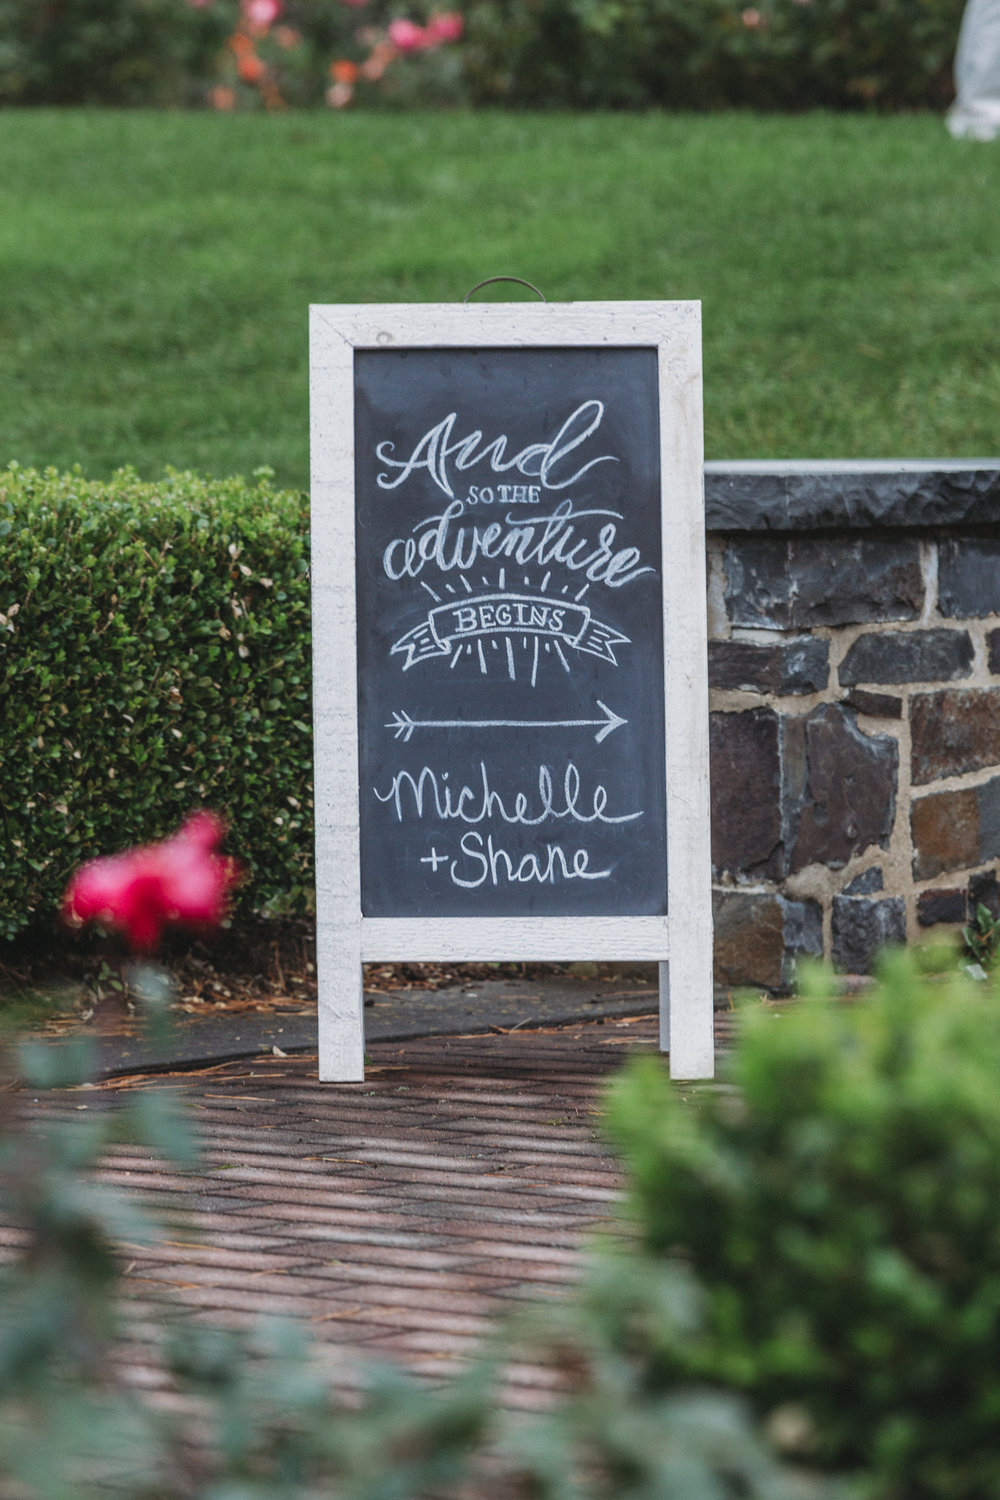 And
SO THE
adventure
BEGINS
Michelle
+Shane